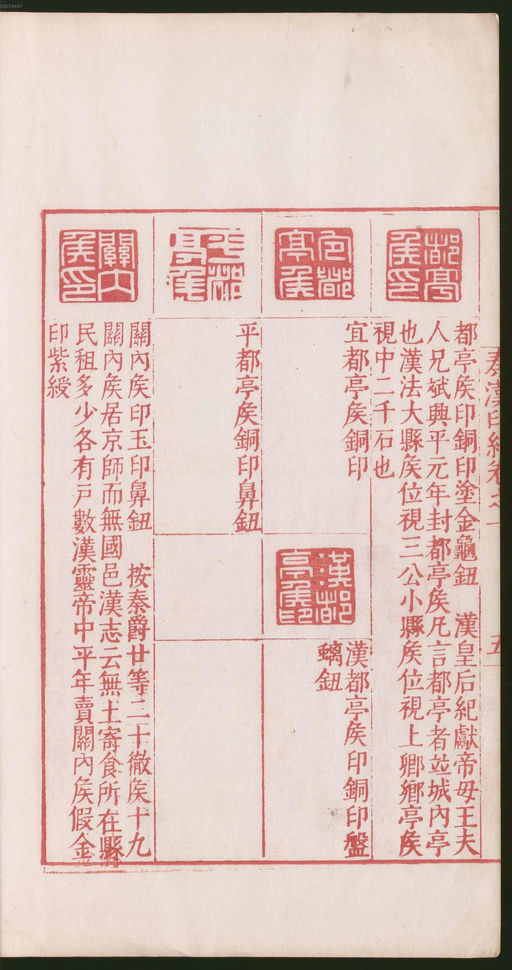 秦漢印統卷之一
五
都亭侯印
都亭矦印銅印塗金龜鈕 漢皇后紀獻帝母王夫
人兄斌興平元年封都亭矦凡言都亭者並城內亭
也漢法大縣矦位視三公小縣矦位視上卿鄉亭矦
視中二千石也
宜都亭矦
宜都亭矦銅印
漢都亭矦印
漢都亭矦印銅印盤
螭鈕
平都亭矦
平都亭矦銅印鼻鈕
關內矦印
關內矦印玉印鼻鈕 按秦爵廿等二十徹矦十九
關內矦居京師而無國邑漢志云無土寄食所在縣
民租多少各有戸數漢靈帝中平年賣關內矦假金
印紫綬
00073467